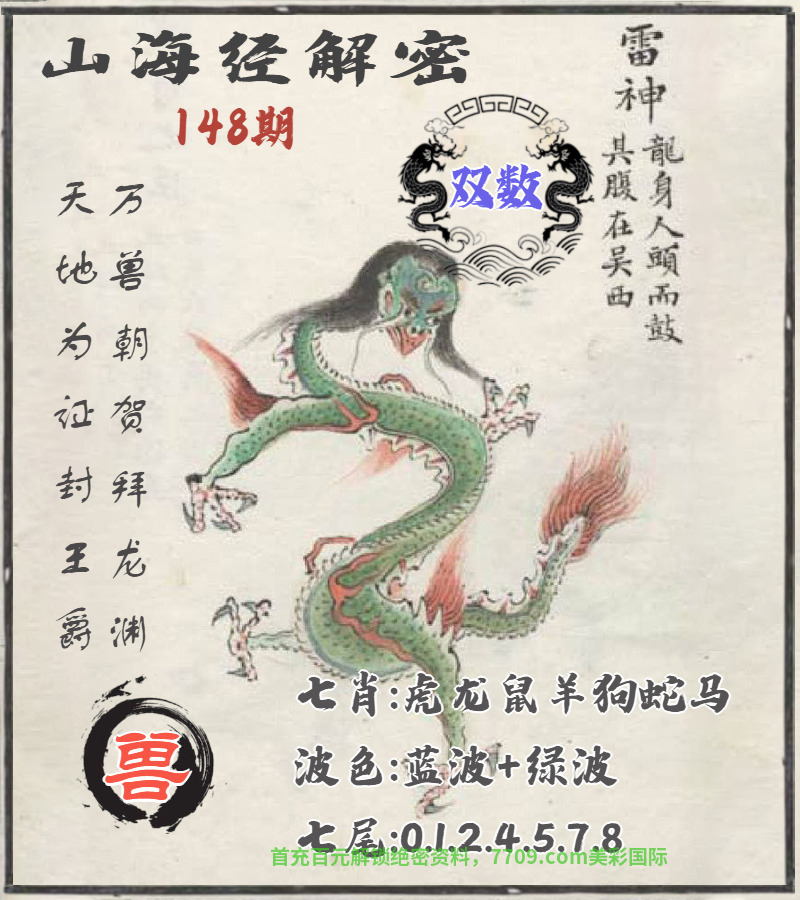 山海经解密
148期
雷神
龍身人頭而鼓
其腹在吴西
双数
万兽朝贺拜龙渊
天地为证封王爵
兽
七肖:虎龙鼠羊狗蛇马
波色:蓝波+绿波
七尾:0.1.2.4.5.7.8
首充百元解锁绝密资料，7709.com美彩国际